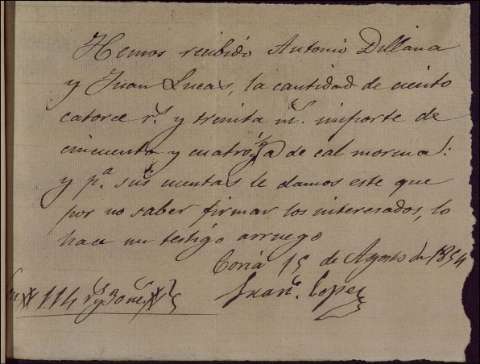 Hemos recibido Antonio Dillana
y Juan Lucas, la cantidad de ciento
catorce r.s y treinta m.s importe de
cincuenta y cuatro de cal morena
y p.a sus cuentas le damos este que
por no saber firmar los interesados, lo
hace un testigo arruego
Coria 15 de Agosto de 1854
114 r.s y 30 m.s
Juan Lopez